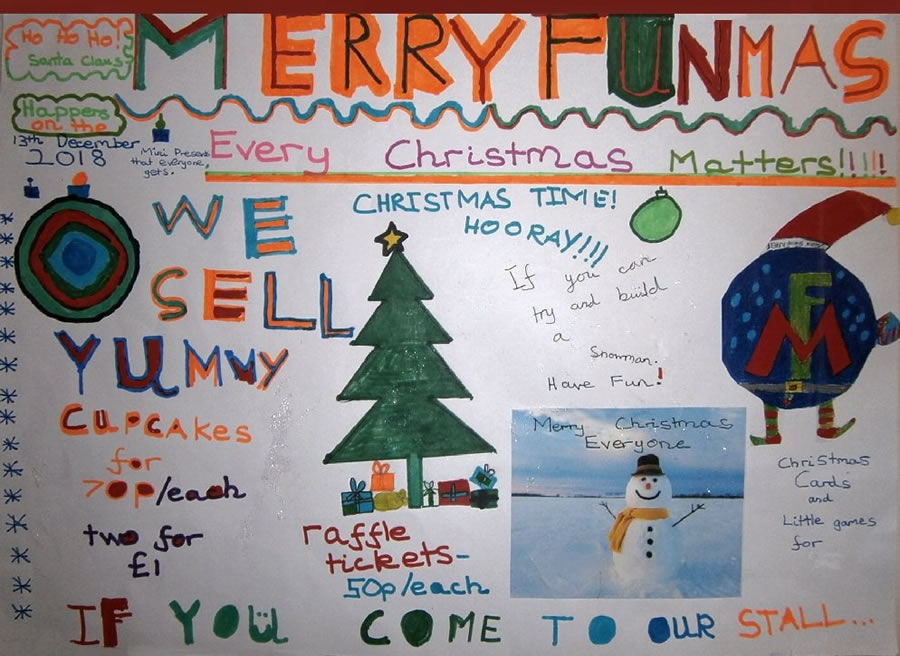 Ho Ho Ho!
Santa Claus
MERRY FUNMAS
Happens
on the
13th December
2018
Mini Present
that everyone
gets.
Every Christmas Matters!!!!!
WE
SELL
YUMMY
CUPCAKES
for
70p/each
two for
£1
CHRISTMAS TIME!
HOORAY!!!!
If you can
try and build
a
Snowman.
Have Fun!
FM
Merry Christmas
Everyone
Christmas
Cards
and
Little games
for
raffle
tickets-
50p/each
IF YOU COME TO OUR STALL...